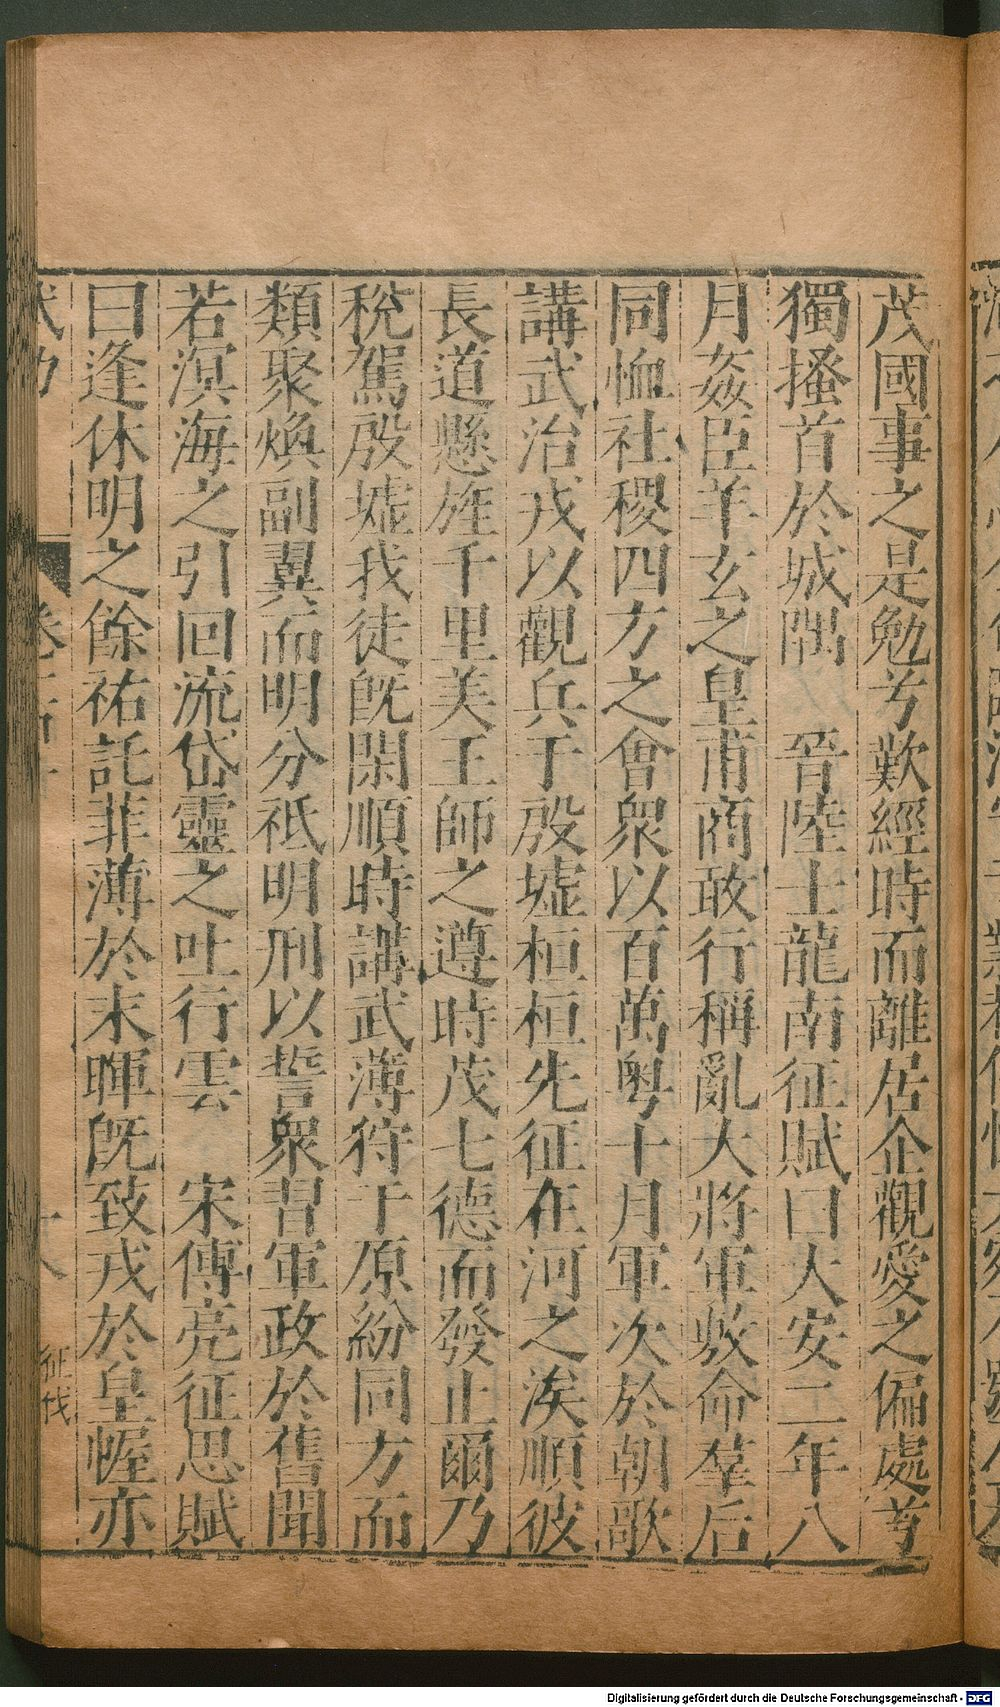 茂國事之是勉兮歎經時而離居企觀愛之偏處兮
獨搔首於城隅　晉陸士龍南征賦曰大安二年八
月姦臣羊玄之皇甫商敢行稱亂大將軍敷命羣后
同恤社稷四方之會衆以百萬粵十月軍次於朝歌
講武治戎以觀兵于殷墟桓桓先征在河之涘順彼
長道懸旌千里美王師之遵時茂七德而發止爾乃
稅駕殷墟我徒旣閑順時講武薄狩于原紛同方而
類聚煥副翼而明分祗明刑以誓衆習軍政於舊聞
若溟海之引回流岱靈之吐行雲　宋傅亮征思賦
曰逢休明之餘祐託菲薄於末暉旣致戎於皇幄亦
武功
征伐
Digitalisierung gefördert durch die Deutsche Forschungsgemeinschaft - DFG